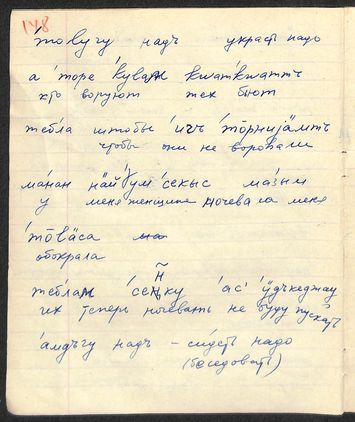 148
'товугу надъ украсть надо
а 'торе 'кувам кваткваттъ
кто воруют тех бьют
тебла штобы 'ичъ 'торнијӓмтъ
чтобы они не воровали
манан най ум 'секыс мазын
у меня женщина ночевала меня
'тōвӓса
обокрала
теблам 'сеӊку 'ас' 'ӱдъкеджау
их теперь ночевать не буду пускать
'амдъгу надъ – сидеть надо
(беседовать)